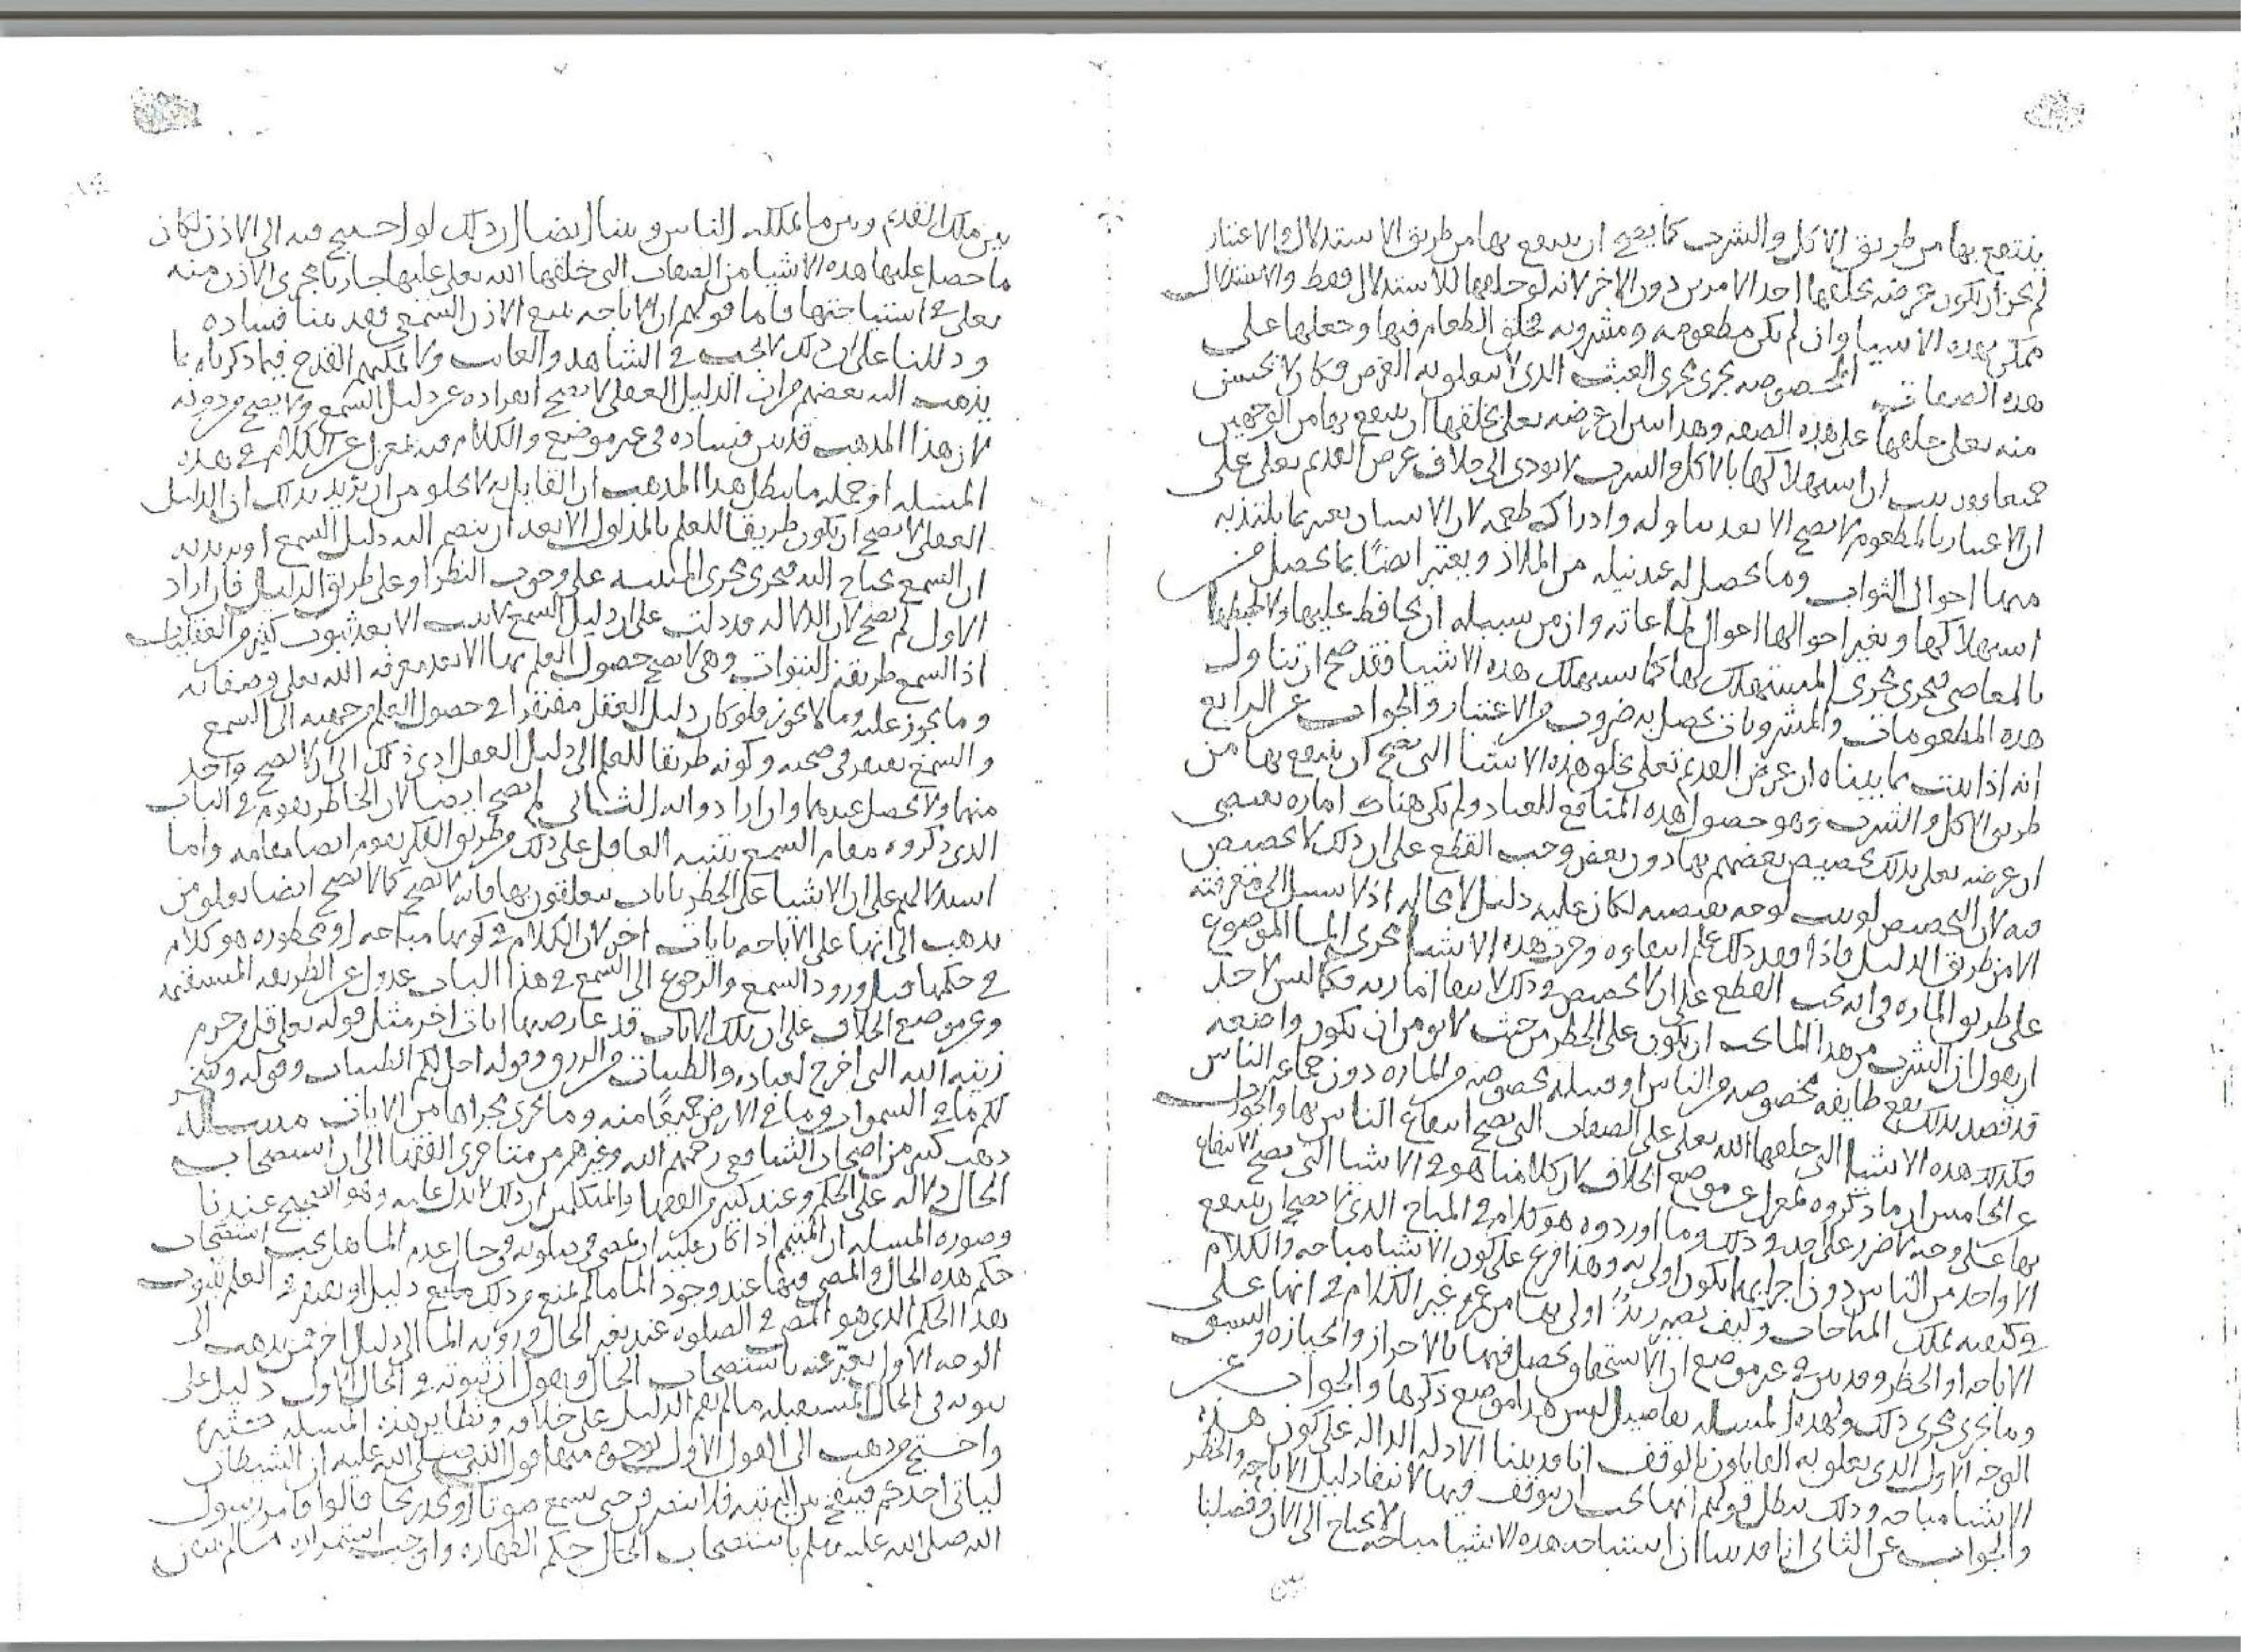 ينتفع بها من طريق الاكل والشرب كما يصح ان ينتفع بها من طريق الاستدلال والاعتبار
لم يجز ان يكون غرضه بخلقها احد الامرين دون الاخر لانه لو خلقها للاستدلال فقط والاستدلال
ممكن بهذه الاشيا وان لم يكن مطعومه ومشروبه فخلق الطعام فيها وجعلها على
هذه الصفات المخصوصه يجرى مجرى العبث الذى لا يتعلق به الغرض فكان لا يحسن
منه تعلى خلقها على هذه الصفه وهذا يبين ان غرضه تعلى بخلقها ان ينتفع بها من الوجهين
جميعا وبين ان استهلاكها بالاكل والشرب لا يودى الى خلاف غرض القديم تعلى على
ان الاعتبار بالمطعوم لا يصح الا بعد تناوله وادراك طعمه لان الانسان يعتبر بما يلتذ به
منها احوال الثواب وما يحصل له عند نيله من الملاذ ويعتبر ايضًا بما يحصل من
استهلاكها وتغير احوالها احوال طاعاته وان من سبيله ان يحافظ عليها ولا يحبطها
بالمعاصى فيجرى مجرى المستهلك لها كما يستهلك هذه الاشيا فقد صح ان تناول
هذه المطعومات والمشروبات يحصل به ضروب من الاعتبار والجواب عن الرابع
انه اذا ثبت بما بيناه ان غرض القديم تعلى بخلق هذه الاشيا التى يصح ان ينتفع بها من
طريق الاكل والشرب وهو حصول هذه المنافع للعباد ولم يكن هناك اماره تقتضى
ان غرضه تعلى بذلك تخصيص بعضهم بها دون بعض وجب القطع على ان ذلك لا تخصيص
فيه لان التخصيص لو ثبت لوجه يقتضيه لكان عليه دليل لا محاله اذ لا سبيل الى معرفته
الا من طريق الدليل فاذا فقد ذلك علم انتفاوه وجرت هذه الاشيا مجرى الما الموضوع
على طريق الماره فى انه يجب القطع على ان لا تخصيص فى ذلك لانتفا امارته فكما ليس لاحد
ان يقول ان الشرب من هذا الما يجب ان يكون على الحظر من حيث لا يومن ان يكون واضعه
قد قصد بذلك نفع طايفه مخصوصه من الناس او قبيله مخصوصه من الماره دون جماعه الناس
فكذلك هذه الاشيا التى خلقها الله تعلى على الصفات التى يصح انتفاع الناس بها والجواب
عن الخامس ان ما ذكروه بمعزل عن موضع الخلاف لان كلامنا هو فى الاشيا التى يصح الانتفاع
بها على وجه لا ضرر على احد فى ذلك وما اوردوه هو كلام فى المباح الذى لا يصح ان ينتفع
الا واحد من الناس دون اجرا بهما يكون اولى به وهذا فرع على كون الاشيا مباحه والكلام
فى كيفيه تملك المباحات وكيف يصير زيدٌ اولى بها من عمرو غير الكلام فى انها على
الاباحه او الحظر وقد بين فى غير موضع ان الاستحقاق يحصل فيها بالاحراز والحيازه والسبق
وما يجرى مجرى ذلك ولهذه المسله تفاصيل ليس هذا موضع ذكرها والجواب عن
الوجه الاول الذى تعلق به القايلون بالوقف انا قد بينا الادله الداله على كون هذه
الاشيا مباحه وذلك يبطل قولهم انها يجب ان يتوقف فيها لانتفا دليل الاباحه والحظر
والجواب عن الثانى انا قد بينا ان استباحه هذه الاشيا مباحه لا يحتاج الى الاذن وفصلنا
بين
بين ملك القديم وبين ما يملكه الناس وبينا ايضا ان ذلك لو احتيج فيه الى الاذن لكان
ما حصل عليها هذه الاشيا من الصفات التى خلقها الله تعلى عليها جاريا مجرى الاذن منه
تعلى فى استباحتها فاما قولهم ان الاباحه تتبع الاذن السمعى فقد بينا فساده
ودللنا على ان ذلك لا يجب فى الشاهد والغايب ولا يمكنهم القدح فيما ذكرناه بما
يذهب اليه بعضهم من ان الدليل العقلى لا يصح انفراده عن دليل السمع ولا يصح من دونه
لان هذا المذهب قد بين فساده فى غير موضع والكلام فيه بمعزل عن الكلام فى هذه
المسله اذ جمله ما يبطل هذا المذهب ان القايل به لا يخلو من ان يريد بذلك ان الدليل
العقلى لا يصح ان يكون طريقا للعلم بالمدلول الا بعد ان ينضم اليه دليل السمع او يريد به
ان السمع يحتاج اليه فيجرى مجرى التنبيه على وجوب النظر او على طريق الدليل فان اراد
الاول لم يصح لان الدلاله قد دلت على ان دليل السمع لا يثبت الا بعد ثبوت كثير من العقليات
اذ السمع طريقه النبوات وهى لا يصح حصول العلم بها الا بعد معرفه الله تعلى وصفاته
وما يجوز عليه وما لا يجوز فلو كان دليل العقل مفتقرا فى حصول العلم من جهته الى السمع
والسمع يفتقر فى صحته وكونه طريقا للعلم الى دليل العقل ادى ذلك الى ان لا يصح واحد
منهما ولا يحصل عندهما وان ارادوا الثانى لم يصح ايضا لان الخاطر يقوم فى الباب
الذى ذكروه مقام السمع بتنبيه العاقل على ذلك وطريق الفكر يقوم ايضا مقامه واما
استدلالهم على ان الاشيا على الحظر بايات يتعلقون بها فانه لا يصح كما لا يصح ايضا تعلق من
يذهب الى انها على الاباحه بايات اخر لان الكلام فى كونها مباحه او محظوره هو كلام
فى حكمها قبل ورود السمع والرجوع الى السمع فى هذا الباب عدول عن الطريقه المستقيمه
وعن موضع الخلاف على ان تلك الايات قد عارضها ايات اخر مثل قوله تعلى قل من حرم
زينه الله التى اخرج لعباده والطيبات من الرزق وقوله احل لكم الطيبات وقوله وسخر
لكم ما فى السموات وما فى الارض جميعًا منه وما يجرى مجراها من الايات مسله
ذهب كثير من اصحاب الشافعى رحمهم الله وغيرهم من متاخرى الفقها الى ان استصحاب
الحال دلاله على الحكم وعند كثير من الفقها والمتكلمين ان ذلك لا يدل عليه وهو الصحيح عندنا
وصوره المسله ان المتيمم اذا كان عليه ان يمضى فى صلوته فى حال عدم الما هل يجب استصحاب
حكم هذه الحال والمضى فيها عند وجود الما ما لم يمنع من ذلك مانع دليل او يفتقر فى العلم بثبوت
هذا الحكم الذى هو المضى فى الصلوه عند تغير الحال فى رويه الما الى دليل اخر فمن يذهب الى
الوجه الاول يعبّر عنه باستصحاب الحال ويقول ان ثبوته فى الحال الاول دليل على
ثبوته فى الحال المستقبله ما لم يقم الدليل على خلافه ونظاير هذه المسله كثيره
واحتج من ذهب الى القول الاول بوجوه منها قول النبى صلى الله عليه ان الشيطان
لياتى احدكم فينفخ بين اليتيه فلا ينصرفن حتى يسمع صوتا او يجد ريحا قالوا فامر رسول
الله صلى الله عليه وسلم باستصحاب الحال حكم الطهاره واوجب استمراره ما لم يتيقن